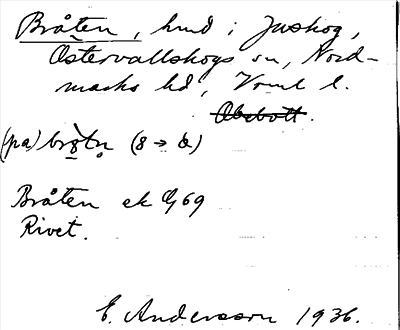 Bråten, hmd i Juskog,
Östervallskogs sn, Nord-
marks hd, Vrml l.
(på) 
Bråten ek 9/69
Rivet.
E. Andersson 1936.